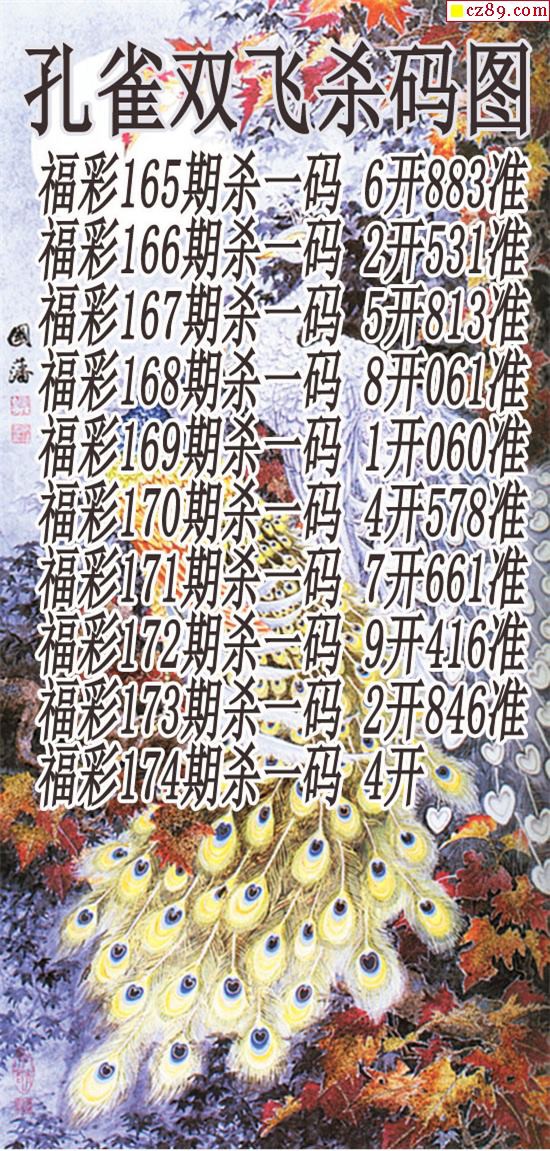 cz89.com
孔雀双飞杀码图
福彩165期杀一码 6开883准
福彩166期杀一码 2开531准
福彩167期杀一码 5开813准
福彩168期杀一码 8开061准
福彩169期杀一码 1开060准
福彩170期杀一码 4开578准
福彩171期杀一码 7开661准
福彩172期杀一码 9开416准
福彩173期杀一码 2开846准
福彩174期杀一码 4开
國藩